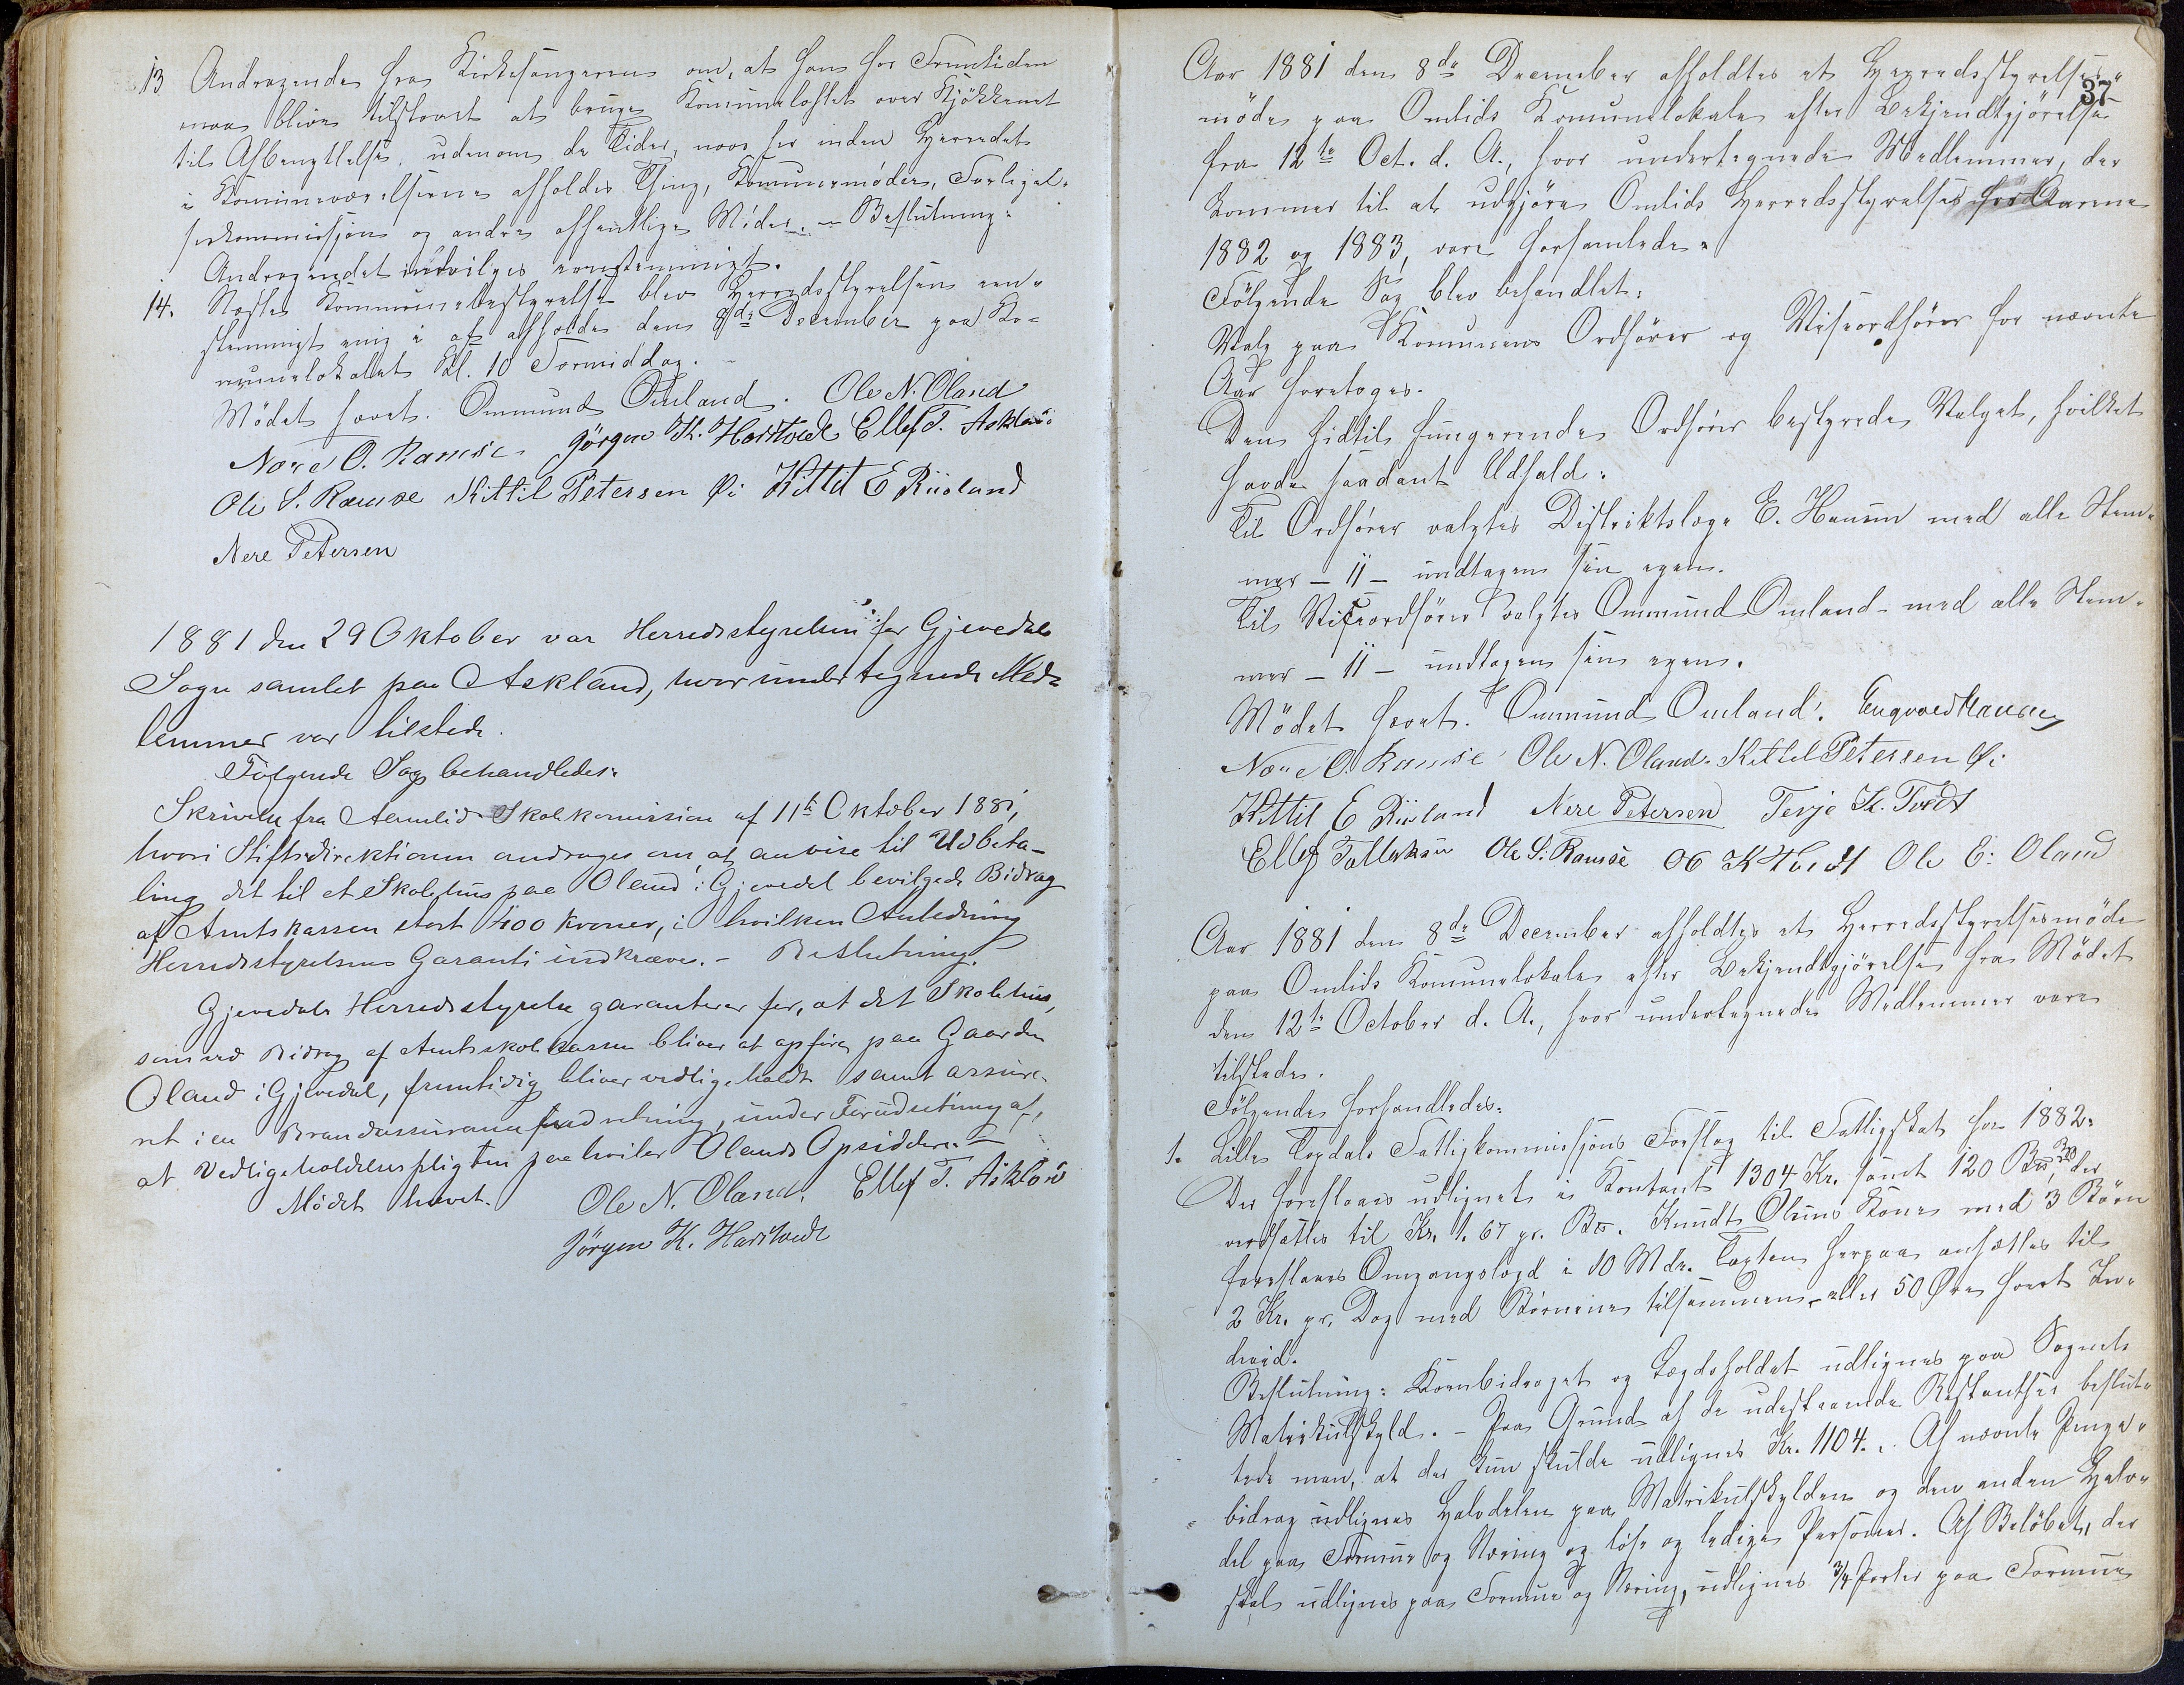 13 Andragende fra Kirkesangeren om, at han for Fremtiden
maa blive tilstaaet at bruge Komuneloftet over Kjøkkenet
til Afbenyttelse, udenom de Tider, naar her inden Herredet
i Komuneværelserne afholdes Thing, Komunemøder, Forligel-
seskommission og andre offentlige Møder. — Beslutning:
Andragendet indvilges eenstemmigt.
14. Næste Kommunebestyrelse blev Herredsstyrelsen een-
stemmigt enig i at afholde den 8de December paa Ko-
munelokalet Kl. 10 Formiddag. —
Mødet hævet. Ommund Omland. Ole N. Oland
Nære O. Ramse Jørgen K. Harstvedt Ellef T. Askland
Ole S. Ramse Kittil Petersen Øi Kittil E Riisland
Nere Petersen
1881 den 29 Oktober var Herredsstyrelsen for Gjevedals
Sogn samlet paa Askland, hvor undertegnede Med-
lemmer var tilstede.
Følgende Sag behandledes:
Skrivelse fra Aamlid Skolekomission af 11te Oktober 1881,
hvori Stiftsdirektionen andrages om at anvise til Udbeta-
ling det til et Skolehus paa Oland i Gjevedal bevilgede Bidrag
af Amtskassen stort 400 Kroner, i hvilken Anledning
Herredsstyrelsens Garanti indkræves. — Beslutning.
Gjevedals Herredsstyrelse garanterer for, at det Skolehus,
som ved Bidrag af Amtsskolekassen bliver at opføre paa Gaarden
Oland i Gjevedal, fremtidig bliver vedligeholdt samt assure-
ret i en Brandassuranceindretning, under Forudsetning af,
at Vedligeholdelsespligten paahviler Olands Opsiddere. —
Mødet hævet. Ole N. Oland. Ellef T. Askland
Jørgen K. Harstvedt
37
Aar 1881 den 8de December afholdtes et Herredsstyrelses-
møde paa Omlids Komunelokale efter Bekjendtgjørelse
fra 12te Oct. d. A., hvor undertegnede Medlemmer, der
kommer til at udgjøre Omlids Herredsstyrelse for Aarene
1882 og 1883, vare forsamlede.
Følgende Sag blev behandlet:
Valg paa Komunens Ordfører og Viseordfører for nævnte
Aar foretoges.
Den hidtil fungerende Ordfører bestyrede Valget, hvilket
havde saadant Udfald:
Til Ordfører valgtes Distriktslæge E. Hansen med alle Stem-
mer — 11 — undtagen sin egen.
Til Viseordfører valgtes Ommund Omland med alle Stem-
mer — 11 — undtagen sin egen.
Mødet hævet. Ommund Omland. Engvald Hansen
Nære O. Ramse Ole N. Oland. Kittel Petersen Øi
Kittil E Riisland Nere Petersen Terje K. Tvedt
Ellef Tallaksen Ole S. Ramse O K Tvedt Ole E. Oland
Aar 1881 den 8de December afholdtes et Herredsstyrelsesmøde
paa Omlids Komunelokale efter Bekjendtgjørelse fra Mødet
den 12te October d. A., hvor undertegnede Medlemmer vare
tilstede.
Følgende forhandledes:
1. Lille Topdals Fattigkommissjons Forslag til Fattigskat for 1882.
Der foreslaaes udlignet i Kontant 1304 Kr. samt 120 der
ansættes til Kr. 1.67 pr. Knudt Olsens Kone med 3 Børn
foreslaaes Omgangslægd i 10 Mdr. Taxten herpaa ansættes til
2 Kr. pr. Dag med Børnene tilsammen, eller 50 Øre hvert In-
divid.
Beslutning: Kornbidraget og Lægdsholdet udlignes paa Sognets
Matrikulskyld. — Paa Grund af de udestaaende Restantser beslut-
tede man, at der kun skulde udlignes Kr. 1104. Af nævnte Penge-
bidrag udlignes Halvdelen paa Matrikulskylden og den anden Halv-
del paa Formue og Næring og løse og ledige Personer. Af Beløbet, der
skal udlignes paa Formue og Næring, udlignes 3/4 Parter paa Formue